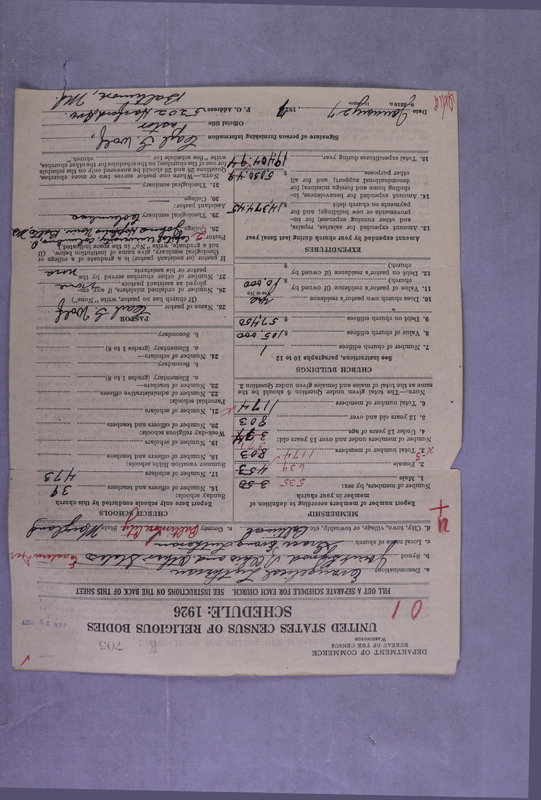 DEPARTMENT OF COMMERCE
BUREAU OF THE CENSUS
WASHINGTON
UNITED STATES CENSUS OF RELIGIOUS BODIES
SCHEDULE: 1926
FILL OUT A SEPARATE SCHEDULE FOR EACH CHURCH. SEE INSTRUCTIONS ON THE BACK OF THIS SHEET
a. Denomination Evangelical Lutheran
b. Synod Joint Synod of Ohio and Other States Eastern Dist
c. Local name of church Grace Evang. Lutheran
d. City, town, village, or township, etc. Baltimore
e. County Baltimore City State Maryland
MEMBERSHIP
Report number of members according to definition of member in your church
Number of members, by sex:
1. Male 350 535
2. Female 453 639
3. Total number of members 803 1174
Number of members under and over 13 years old:
4. Under 13 years of age 371
5. 13 years old and over 803
6. Total number of members 1174
NOTE.—The total given under Question 6 should be the same as the total of males and females given under Question 3.
CHURCH BUILDINGS
See Instructions, paragraphs 10 to 12
7. Number of church edifices 1
8. Value of church edifices $ 105,000
9. Debt on church edifices $ 57,450
10. Does church own pastor's residence Yes
11. Value of pastor's residence (if owned by church) $ 10,000
12. Debt on pastor's residence (if owned by church) $
EXPENDITURES
Amount expended by your church during last fiscal year
13. Amount expended for salaries, repairs, and other running expenses; for improvements or new buildings; and for payments on church debt $ 14,374.45
14. Amount expended for benevolences, including home and foreign missions; for denominational support; and for all other purposes $ 5,030.49
15. Total expenditures during year $ 19,404.94
Report here only schools conducted by this church
CHURCH SCHOOLS
Sunday schools:
16. Number of officers and teachers 39
17. Number of scholars 473
Summer vacation Bible schools:
18. Number of officers and teachers
19. Number of scholars
Week-day religious schools:
20. Number of officers and teachers
21. Number of scholars
Parochial schools:
22. Number of administrative officers
23. Number of teachers—
a. Elementary (grades 1 to 8)
b. Secondary
24. Number of scholars—
a. Elementary (grades 1 to 8)
b. Secondary
PASTOR
25. Name of pastor
(If church has no pastor, write "None")
26. Number of ordained ministers, if any, employed as assistant pastors None
27. Number of other churches served by the pastor or his assistants none
If pastor or assistant pastor is a graduate of a college or theological seminary, give name of institution below. (If not a graduate, write "No" in the space indicated.)
Pastor:
28. College
29. Theological seminary Columbus
Assistant pastor:
30. College
31. Theological seminary
NOTE.—Where one pastor serves two or more churches, Questions 25 and 26 should be answered only on the schedule for one of the churches; on the schedules for the other churches, write "See schedule for church."
Signature of person furnishing information
Official title Pastor
P. O. Address 5202 Harford Ave.
Baltimore, Md.
Date January 27, 192